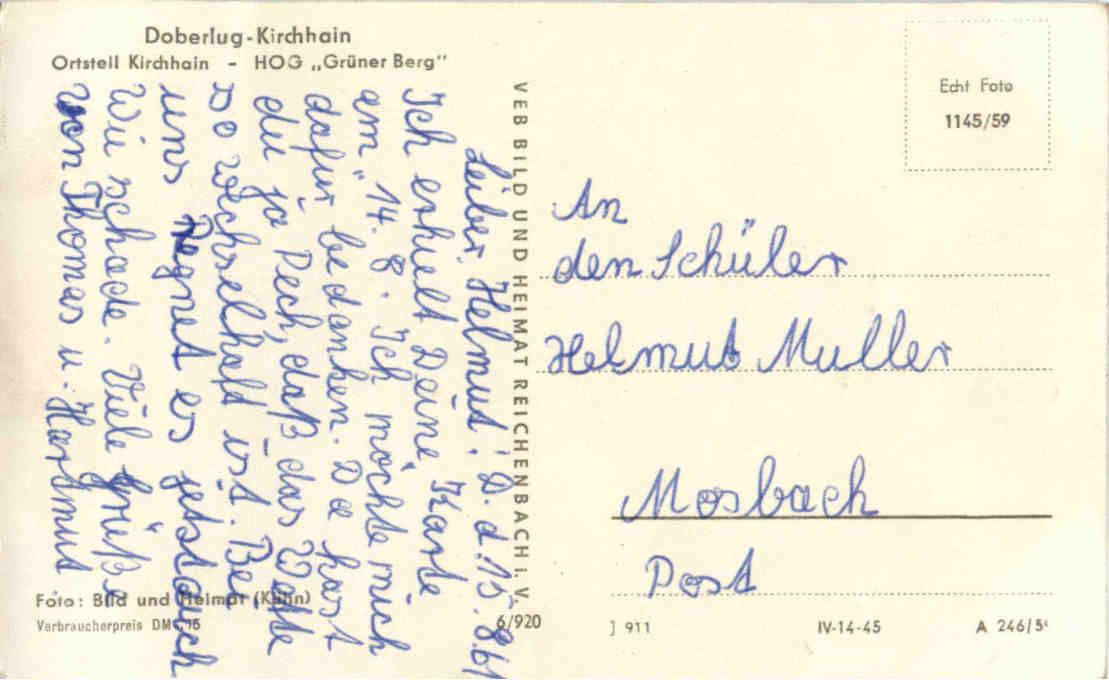 Doberlug-Kirchhain
Ortsteil Kirchhain - HOG „Grüner Berg"
Lieber Helmut! D. d. 15. 8. 61
Ich erhielt Deine Karte
am 14. 8. Ich möchte mich
dafür bedanken. Da hast
du ja Pech, daß das Wette
so wechselhaft ist. Bei
uns Regnet es jetst auch
Wie schade. Viele Grüße
von Thomas u. Hartmut
Foto: Bild und Heimat (Kühn)
Verbraucherpreis DM
VEB BILD UND HEIMAT REICHENBACH i. V.
6/920
Echt Foto
1145/59
An
den Schüler
Helmut Muller
Mosbach
Post
J 911
IV-14-45
A 246/5